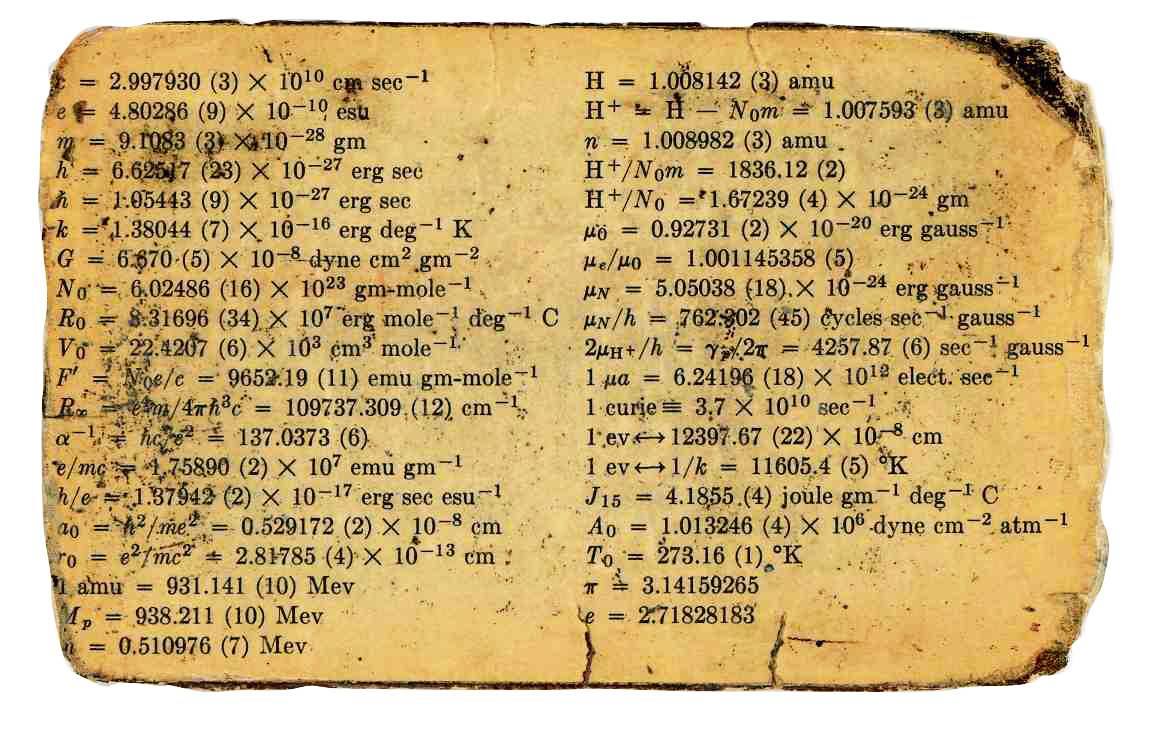 c = 2.997930 (3) × 10¹⁰ cm sec⁻¹
e = 4.80286 (9) × 10⁻¹⁰ esu
m = 9.1083 (3) × 10⁻²⁸ gm
h = 6.62517 (23) × 10⁻²⁷ erg sec
ħ = 1.05443 (9) × 10⁻²⁷ erg sec
k = 1.38044 (7) × 10⁻¹⁶ erg deg⁻¹ K
G = 6.670 (5) × 10⁻⁸ dyne cm² gm⁻²
N₀ = 6.02486 (16) × 10²³ gm-mole⁻¹
R₀ = 8.31696 (34) × 10⁷ erg mole⁻¹ deg⁻¹ C
V₀ = 22.4207 (6) × 10³ cm³ mole⁻¹
F′ = N₀e/c = 9652.19 (11) emu gm-mole⁻¹
R∞ = e⁴m/4πħ³c = 109737.309 (12) cm⁻¹
α⁻¹ = ħc/e² = 137.0373 (6)
e/mc = 1.75890 (2) × 10⁷ emu gm⁻¹
h/e = 1.37942 (2) × 10⁻¹⁷ erg sec esu⁻¹
a₀ = ħ²/me² = 0.529172 (2) × 10⁻⁸ cm
r₀ = e²/mc² = 2.81785 (4) × 10⁻¹³ cm
1 amu = 931.141 (10) Mev
Mₚ = 938.211 (10) Mev
m = 0.510976 (7) Mev
H = 1.008142 (3) amu
H⁺ = H − N₀m = 1.007593 (3) amu
n = 1.008982 (3) amu
H⁺/N₀m = 1836.12 (2)
H⁺/N₀ = 1.67239 (4) × 10⁻²⁴ gm
μ₀ = 0.92731 (2) × 10⁻²⁰ erg gauss⁻¹
μₑ/μ₀ = 1.001145358 (5)
μ_N = 5.05038 (18) × 10⁻²⁴ erg gauss⁻¹
μ_N/h = 762.302 (45) cycles sec⁻¹ gauss⁻¹
2μ_H⁺/h = γₚ/2π = 4257.87 (6) sec⁻¹ gauss⁻¹
1 μa = 6.24196 (18) × 10¹² elect. sec⁻¹
1 curie ≡ 3.7 × 10¹⁰ sec⁻¹
1 ev ↔ 12397.67 (22) × 10⁻⁸ cm
1 ev ↔ 1/k = 11605.4 (5) °K
J₁₅ = 4.1855 (4) joule gm⁻¹ deg⁻¹ C
A₀ = 1.013246 (4) × 10⁶ dyne cm⁻² atm⁻¹
T₀ = 273.16 (1) °K
π = 3.14159265
e = 2.71828183